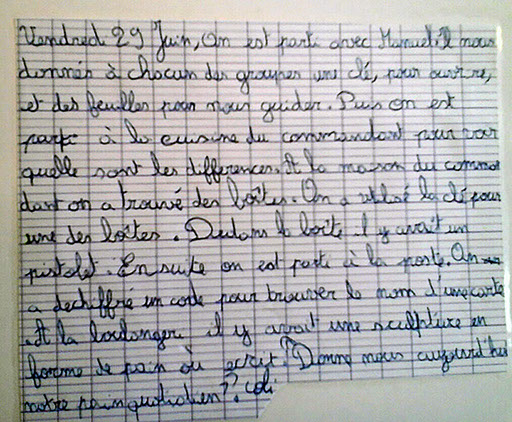 Vendredi 29 Juin, On est parti avec Manuel. Il nous
donnés à chacun des groupes une clé, pour ouvrire,
et des feuilles pour nous guider. Puis on est
parti à la cuisine du commandant pour voir
quelle sont les differences. A la maison du comman
dant on a trouvé des boîtes. On a utilisé la clé pour
une des boîtes. Dedans la boîte il y avait un
pistolet. Ensuite on est parti à la poste. On
a dechiffré un code pour trouver le nom d'une carte
. A la boulangeri il y avait une sculpture en
forme de pain où ecrit: "Donne nous aujourd'hui
notre pain quotidien".